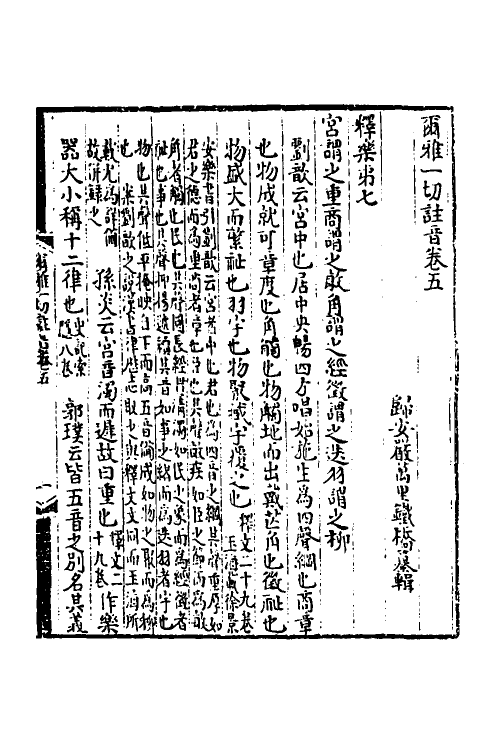 爾雅一切註音卷五
歸安嚴萬里鐵橋纂輯
釋樂弟七
宮謂之重商謂之敏角謂之經徵謂之迭羽謂之柳
劉歆云宮中也居中央暢四方唱始施生為四聲綱也商章
也物成就可章度也角觸也物觸地而出戴芒角也徵祉也
物盛大而繁祉也羽宇也物聚臧宇覆之也釋文二十九卷
玉海載徐景
安樂書引劉歆云宮者中也君也為四音之綱其聲重厚如
君之德而為重商者章也臣也其聲敏疾如臣之節而為敏
角者觸也民也其聲圓長經貫清濁如民之象而為經徵者
祉也事也其聲抑揚遞續其音如事之緒而為迭羽者宇也
物也其聲低平掩映自下而高五音備成如物之聚而為柳
也
釋文文同而玉海所
載尤為詳備
故併錄之
孫炎云宮音濁而遲故曰重也釋文二十九卷作樂
器大小稱十二律也
郭璞云皆五音之別名其義
爾雅一切註音卷五
一